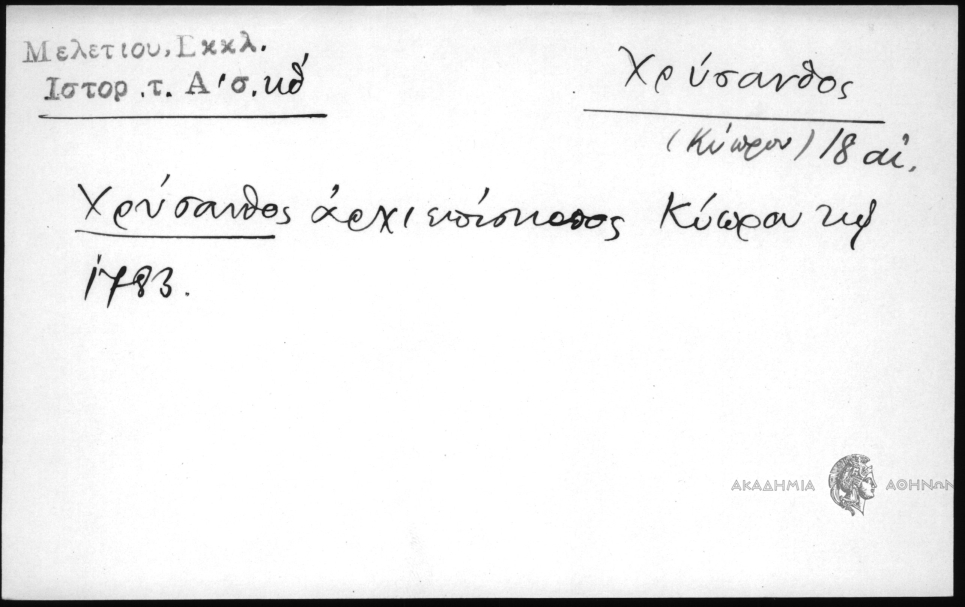 Μελετίου, Εκκλ.
Ιστορ. τ. Α' σ. κθ'
Χρύσανθος
(Κύπρου) 18 αἰ.
Χρύσανθος ἀρχιεπίσκοπος Κύπρου τῷ
1783.
ΑΚΑΔΗΜΙΑ ΑΘΗΝΩΝ